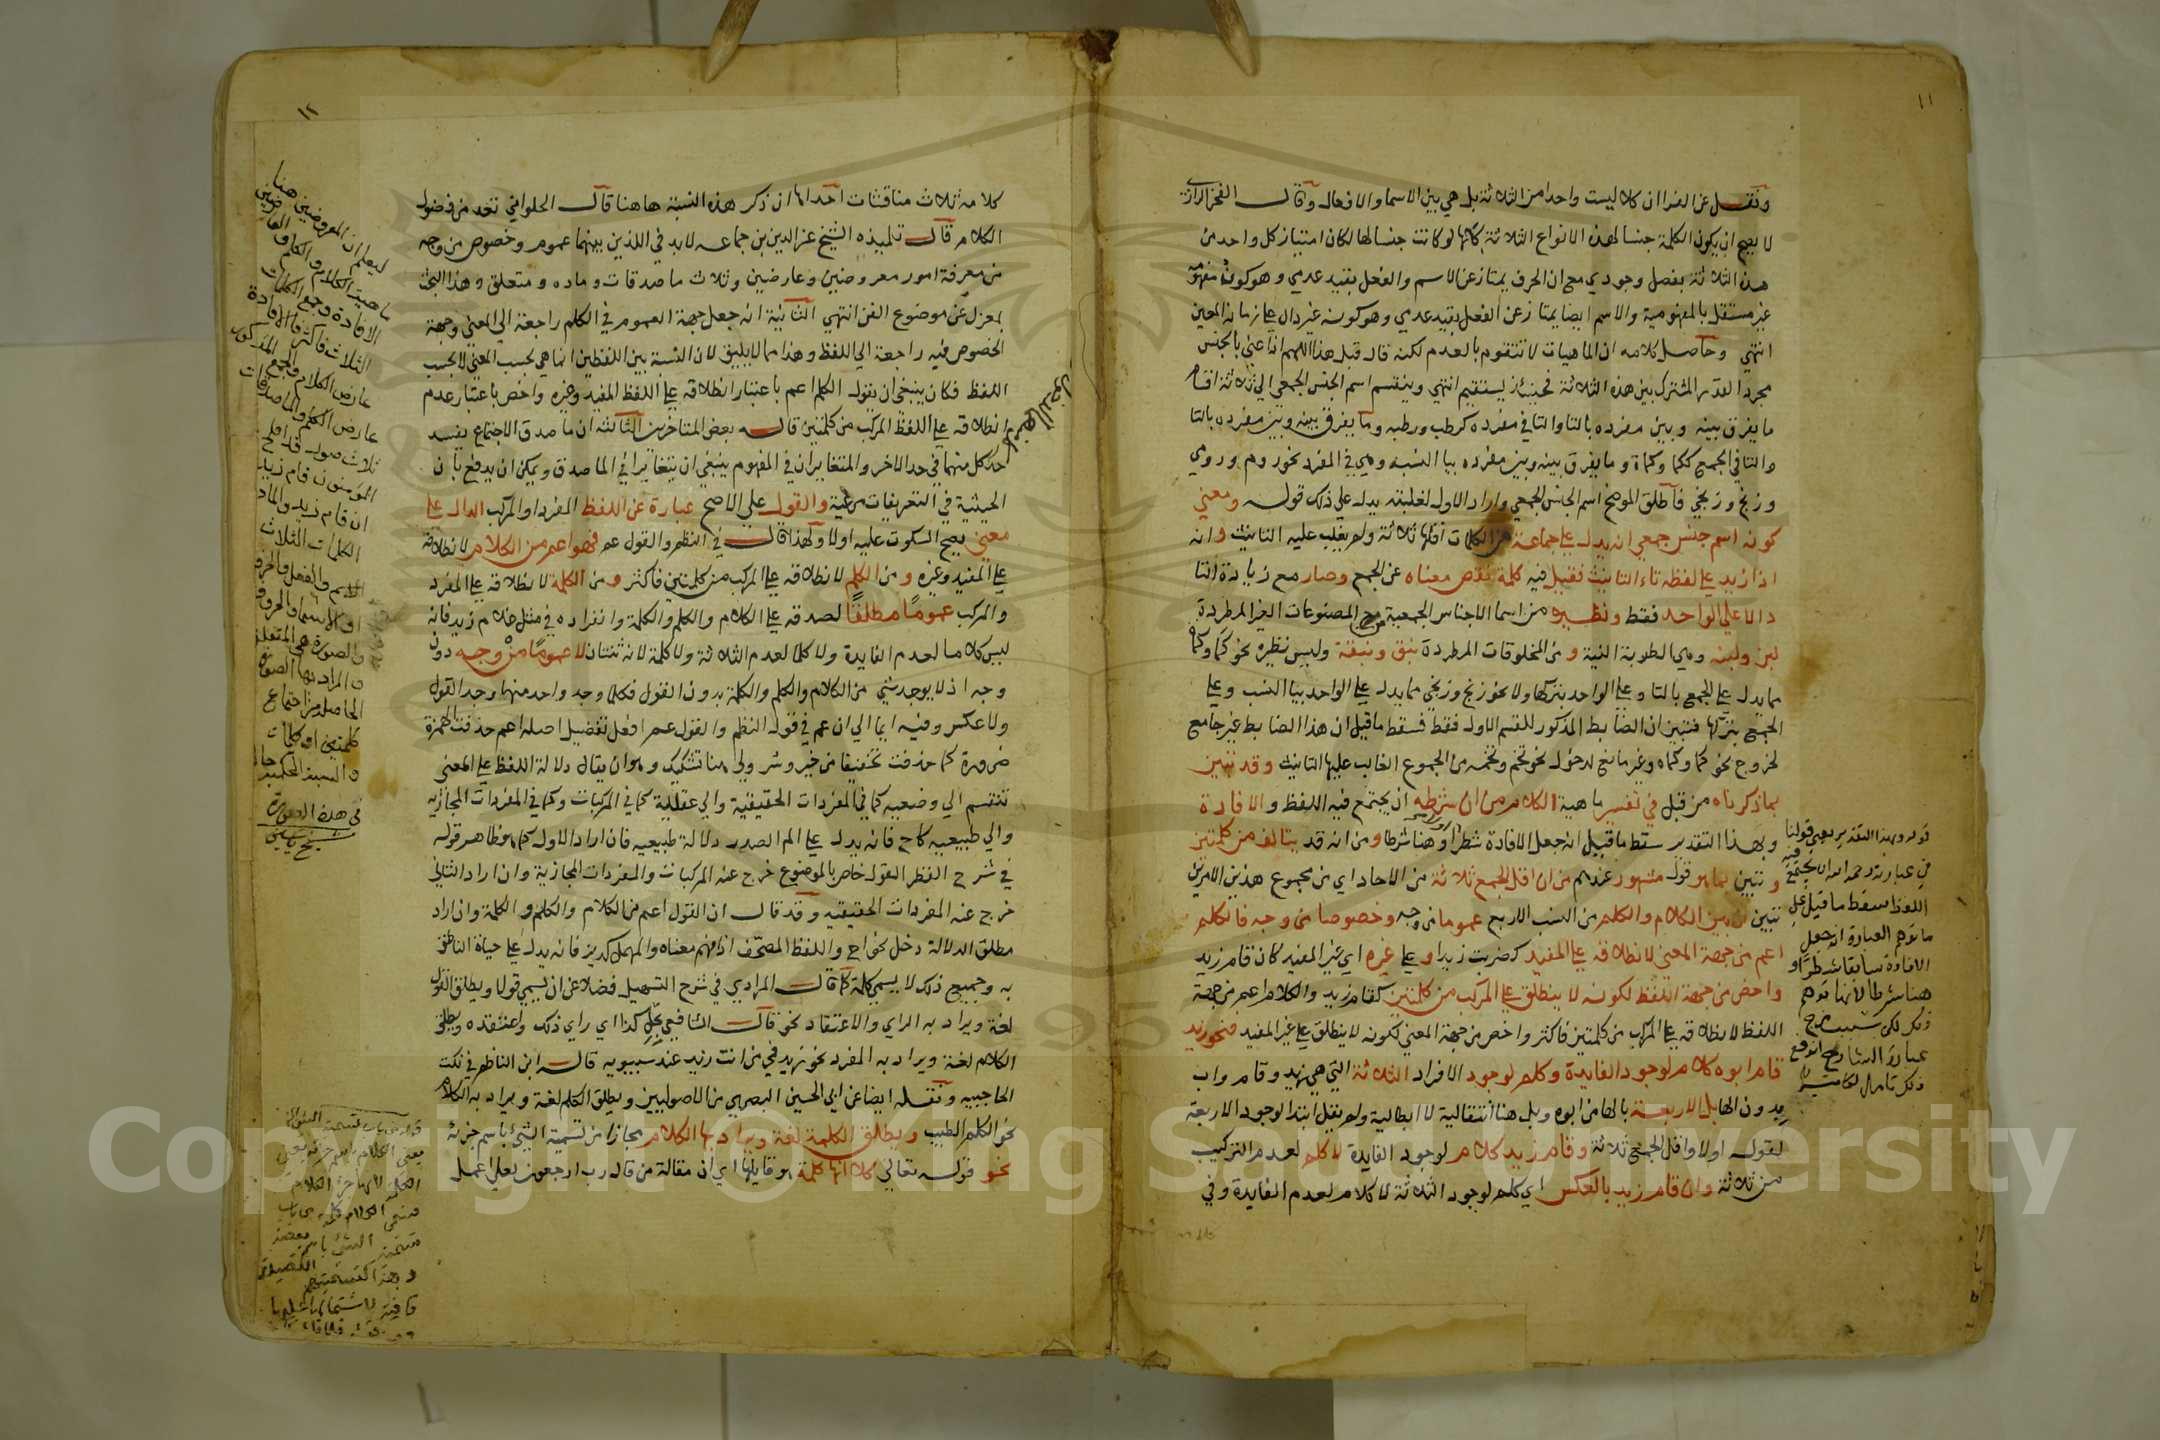 ١١
ونقل عن الفرا ان كلا ليست واحدا من الثلاثة بل هي بين الاسما والافعال وقال الفخر الرازي
لا يصح ان يكون الكلمة جنسا لهذه الانواع الثلاثة لانها لو كانت جنسا لها لكان امتياز كل واحد من
هذه الثلاثة بفصل وجودي مع ان الحرف يمتاز عن الاسم والفعل بقيد عدمي وهو كون مفهومه
غير مستقل بالمفهومية والاسم ايضا يمتاز عن الفعل بقيد عدمي وهو كونه غير دال على زمانه المعين
انتهي وحاصل كلامه ان الماهيات لا تتقوم بالعدم لكنه قال قبل هذا اللهم اذا عني بالجنس
مجرد القدر المشترك بين هذه الثلاثة فحينئذ يستقيم انتهي وينقسم اسم الجنس الجمعي الي ثلاثة اقسام
ما يفرق بينه وبين مفرده بالتا والتا في مفرده كرطب ورطبه وما يفرق بينه وبين مفرده بالتا
والتا في الجمع ككما وكماة وما يفرق بينه وبين مفرده بيا النسب وهي في المفرد نحو روم ورومي
وزنج وزنجي فاطلق الموضح اسم الجنس الجمعي واراد الاول لغلبته يدل علي ذلك قوله ومعني
كونه اسم جنس جمعي انه يدل علي جماعة من الكلمات اقلها ثلاثة ولم يغلب عليه التانيث وانه
اذا زيد علي لفظه تاء التانيث فقيل فيه كلمة نقص معناه عن الجمع وصار مع زيادة التا
دالا علي الواحد فقط ونظيره من اسما الاجناس الجمعية من المصنوعات الغير المطردة
لبن ولبنه وهي الطوبة النية ومن المخلوقات المطردة نبق ونبقة وليس نظيره نحو كما وكماة
مما يدل علي الجمع بالتا وعلي الواحد بتركها ولا نحو زنج وزنجي مما يدل علي الواحد بيا النسب وعلي
الجمع بتركها فتبين ان الضابط المذكور للقسم الاول فقط فسقط ما قيل ان هذا الضابط غير جامع
لخروج نحو كما وكماه وغير مانع لدخول نحو تخم وتخمه من الجموع الغالب عليها التانيث وقد تبين
بما ذكرناه من قبل في تفسير ماهية الكلام من ان شرطه ان يجتمع فيه اللفظ والافادة
وبهذا التقدير سقط ما قيل انه جعل الافادة شطرا وهنا شرطا ومن انه قد يتالف من كلمتين
وتبين بما هو قول مشهور عندهم من ان اقل الجمع ثلاثة من الاحاد اي من مجموع هذين الامرين
تبين ان بين الكلام والكلم من النسب الاربع عموما من وجه وخصوصا من وجه فالكلم
اعم من جهة المعني لانطلاقه علي المفيد كضربت زيدا وعلي غيره اي غير المفيد كان قام زيد
واخص من جهة اللفظ لكونه لا ينطلق علي المركب من كلمتين كقام زيد والكلام اعم من جهة
اللفظ لانطلاقه علي المركب من كلمتين فاكثر واخص من جهة المعني لكونه لا ينطلق علي غير المفيد فنحو زيد
قام ابوه كلام لوجود الفايدة وكلم لوجود الافراد الثلاثة التي هي زيد وقام واب
بدون الها بل الاربعة بالها من ابوه وبل هنا انتقالية لا ابطالية ولم يقل ابتدا لوجود الاربعة
لقوله اولا واقل الجمع ثلاثة وقام زيد كلام لوجود الفايدة لا كلم لعدم التركيب
من ثلاثة وان قام زيد بالعكس اي كلم لوجود الثلاثة لا كلام لعدم الفايدة وفي
قوله وبهذا التقدير يعني قولنا
في عبارته رحمه الله ان يجتمع فيه
اللفظ سقط ما قيل علي
ما توهم العبارة انه جعل
الافادة سابقا شطرا و
هنا شرطا لانها توهم
ذلك لكن بسبب مزج
عبارة الشارح اندفع
ذلك تامل
١٢
كلامه ثلاث مناقشات احداها ان ذكر هذه النسبة هاهنا قال الحلواني تعد من فضول
الكلام قال تلميذه الشيخ عز الدين بن جماعه لا بد في اللذين بينهما عموم وخصوص من وجه
من معرفة امور معروضين وعارضين وثلاث ما صدقات وماده ومتعلق وهذا البحث
بمعزل عن موضوع الفن انتهي الثانية انه جعل جهة العموم في الكلم راجعة الي المعني وجهة
الخصوص فيه راجعة الي اللفظ وهذا مما لا يليق لان النسبة بين اللفظين انما هي بحسب المعني لا بحسب
اللفظ فكان ينبغي ان يقول الكلم اعم باعتبار انطلاقه علي اللفظ المفيد وغيره واخص باعتبار عدم
انطلاقه علي اللفظ المركب من كلمتين قاله بعض المتاخرين الثالثة ان ما صدق الاجتماع يفسد
احد كل منهما في حد الاخر والمتغايران في المفهوم ينبغي ان يتغايرا في الماصدق ويمكن ان يدفع بان
الحيثية في التعريفات مرعية والقول علي الاصح عبارة عن اللفظ المفرد او المركب الدال علي
معني يصح السكوت عليه اولا ولهذا قال في النظم والقول عم فهو اعم من الكلام لانطلاقه
علي المفيد وغيره ومن الكلم لانطلاقه علي المركب من كلمتين فاكثر ومن الكلمة لانطلاقه علي المفرد
والمركب عموما مطلقا لصدقه علي الكلام والكلم والكلمة وانفراده في مثل غلام زيد فانه
ليس كلاما لعدم الفايدة ولا كلما لعدم الثلاثة ولا كلمة لانه ثنتان لا عموما من وجه دون
وجه اذ لا يوجد شي من الكلام والكلم والكلمة بدون القول فكلما وجد واحد منها وجد القول
ولا عكس وفيه ايما الي ان عم في قول النظم والقول عم افعل تفضيل اصله اعم حذفت الهمزة
ضرورة كما حذفت تخفيفا من خير وشر ولي هنا تشكيك وهو ان يقال دلالة اللفظ علي المعني
تنقسم الي وضعيه كما في المفردات الحقيقية والي عقلية كما في المركبات وكما في المفردات المجازية
والي طبيعيه كاح فانه يدل علي الم الصدر دلالة طبيعيه فان اراد الاول كما هو ظاهر قوله
في شرح القطر القول خاص بالموضوع خرج عنه المركبات والمفردات المجازية وان اراد الثاني
خرج عنه المفردات الحقيقيه وقد قال ان القول اعم من الكلام والكلم والكلمة وان اراد
مطلق الدلالة دخل نحو اح واللفظ المصحف اذا فهم معناه والمهمل كديز فانه يدل علي حياة الناطق
به وجميع ذلك لا يسمي كلمة كما قال المرادي في شرح التسهيل فضلا عن ان يسمي قولا ويطلق القول
لغة ويراد به الراي والاعتقاد نحو قال الشافعي بحل كذا اي راي ذلك واعتقده ويطلق
الكلام لغة ويراد به المفرد نحو زيد في من انت زيد عند سيبويه قاله ابن الناظم في نكت
الحاجبيه ونقله ايضا عن ابي الحسين البصري من الاصوليين ويطلق الكلم لغة ويراد به الكلام
نحو الكلم الطيب ويطلق الكلمة لغة ويراد بها الكلام مجازا من تسمية الشي باسم جزئه
نحو قوله تعالي كلا انها كلمة هو قايلها اي ان مقالة من قال رب ارجعون لعلي اعمل
ليعلم ان المعروضين هنا
ماهية الكلام والكلم والعارضين
الافادة وجمع الكلمات
الثلاث فاكثر فالافادة
عارض الكلام والجمع المذكور
عارض الكلم والماصدقات
ثلاث صور قد افلح
المؤمنون قام زيد
ان قام زيد والماده
الكلمات الثلاث
الاسم والفعل والحرف
او الاسما والحروف
والصورة هي المتعلق
والمراد بها الصورة
الحاصله من اجتماع
كلمتين او كلمات
في هذه الصورة
Copyright © King Saud University